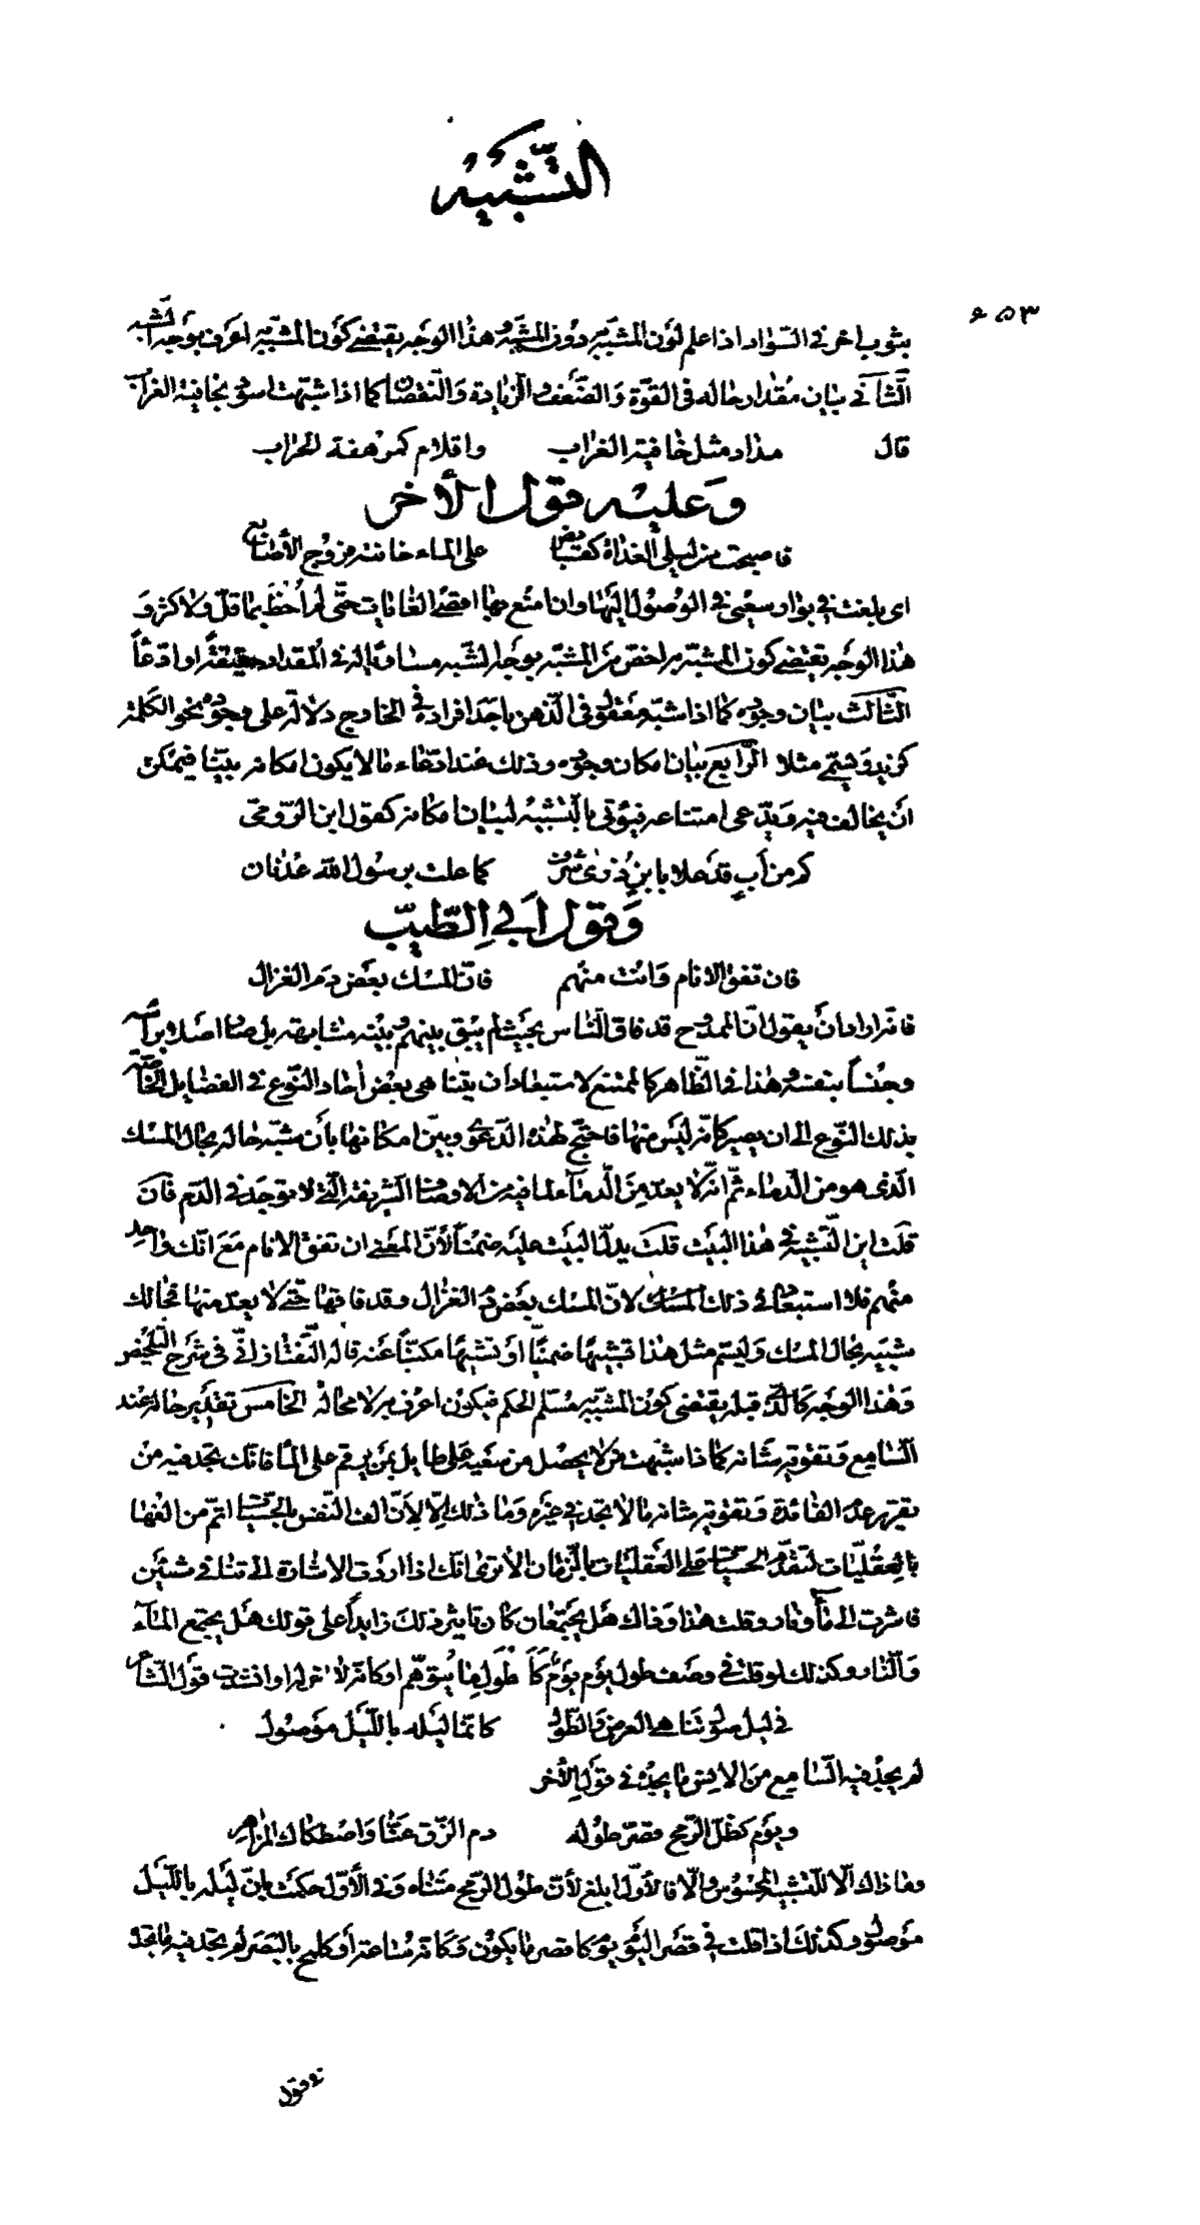 التشبيه
٤٥٣
بثوب اخر فى السواد اذا علم لون المشبه به دون المشبه وهذا الوجه يقتضى كون المشبه به اعرف بوجه الشبه
الثانى بيان مقدار حاله فى القوة والضعف والزيادة والنقصان كما اذا شبهت اسود بخافية الغراب
قال مداد مثل خافية الغراب واقلام كمرهفة الحراب
وعليه قول الأخر
فاصبحت من ليلى الغداة كقابض على الماء خانته فروج الأصابع
اى بلغت فى بوار سعيى فى الوصول اليها وان امتع بها اقصى الغايات حتى لم أحظ بما قل ولا كثر و
هذا الوجه يقتضى كون المشبه به اخص من المشبه بوجه الشبه مساويا له فى المقدار حقيقة او ادعاً
الثالث بيان وجوده كما اذا شبه معقول فى الذهن باحد افراده فى الخارج دلالة على وجوده نحو الكلمة
كزيد ويسم مثلا الرابع بيان امكان وجوده وذلك عند ادعاء مالا يكون امكانه بيناً فيمكن
ان يخالف فيه ويدعى امتناعه فيؤتى بالتشبيه لبيان امكانه كقول ابن الرومى
كم من أب قد علا بابن ذرى شرف كما علت برسول الله عدنان
وقول أبى الطيب
فان تفق الانام وانت منهم فان المسك بعض دم الغزال
فانه اراد أن يقول ان الممدوح قد فاق الناس بحيث لم يبق بينهم وبينه مشابهة بل صار اصلا برأسه
وجنساً بنفسه وهذا فى الظاهر كالممتنع لاستبعاد ان يتناهى بعض أحاد النوع فى الفضايل الخاصة
بذلك النوع الى ان يصير كانه ليس منها فاحتج لهذه الدعوى وبين امكانها بأن شبه حاله بحال المسك
الذى هو من الدماء ثم انه لا يعد من الدماء لما فيه من الاوصاف الشريفة التى لا توجد فى الدم فان
قلت اين التشبيه فى هذا البيت قلت يدل البيت عليه ضمناً لأن المعنى ان تفق الانام مع انك واحد
منهم فلا استبعاد فى ذلك لان المسك بعض دم الغزال وقد فاقها حتى لا يعد منها فحالك
شبيه بحال المسك وليسم مثل هذا تشبيها ضمنيا او تشبيها مكنياً عنه قاله التفتازانى فى شرح التلخيص
وهذا الوجه كالذى قبله يقتضى كون المشبه به مسلم الحكم فيكون اعرف به لا محالة الخامس تقرير حاله عند
السامع وتقوية شانه كما اذا شبهت من لا يحصل من سعيه على طايل بمن يرقم على الماء فانك تجد فيه من
تقرير عدم الفائدة وتقوية شانه مالا تجده فى غيره وما ذلك إلا لأن الف النفس بالحسيات اتم من الفها
بالعقليات لتقدم الحسيات على العقليات بالزمان الا ترى انك اذا اردت الاشارة الى تنافى شيئين
فاشرت الى ماء ونار وقلت هذا وذاك هل يجتمعان كان تاثير ذلك زايداً على قولك هل يجتمع الماء
والنار وكذلك لو قلت فى وصف طول يوم يوم كأطول ما يتوهم او كانه لا اخر له او انشدت قول الشاعر
فى ليل صول تناهى العرض والطول كانما ليله بالليل موصول
لم يجد فيه السامع من الانس ما يجده فى قول الأخر
ويوم كظل الرمح قصر طوله دم الزق عنا واصطكاك المزاهر
وما ذاك الا للتشبيه المحسوس والا فالأول ابلغ لأن طول الرمح متناه وفى الأول حكمت بان ليله بالليل
موصول وكذلك اذا قلت فى قصر اليوم يوم كاقصر ما يكون وكانه ساعة أو كلمح بالبصر لم تجد فيه ما تجد
فى قول